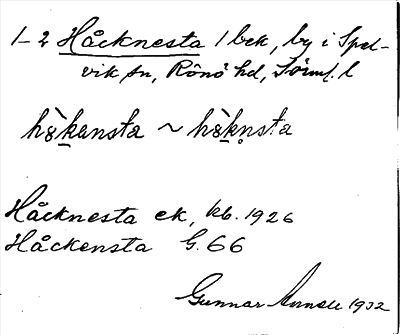 1–2 Håcknesta 1 bek, by i Spel-
vik sn, Rönö hd, Sörml. l
hɔ̀kansta ~ hɔ̀kn̥sta
Håcknesta ek, kb. 1926
Håckensta G. 66
Gunnar 1932